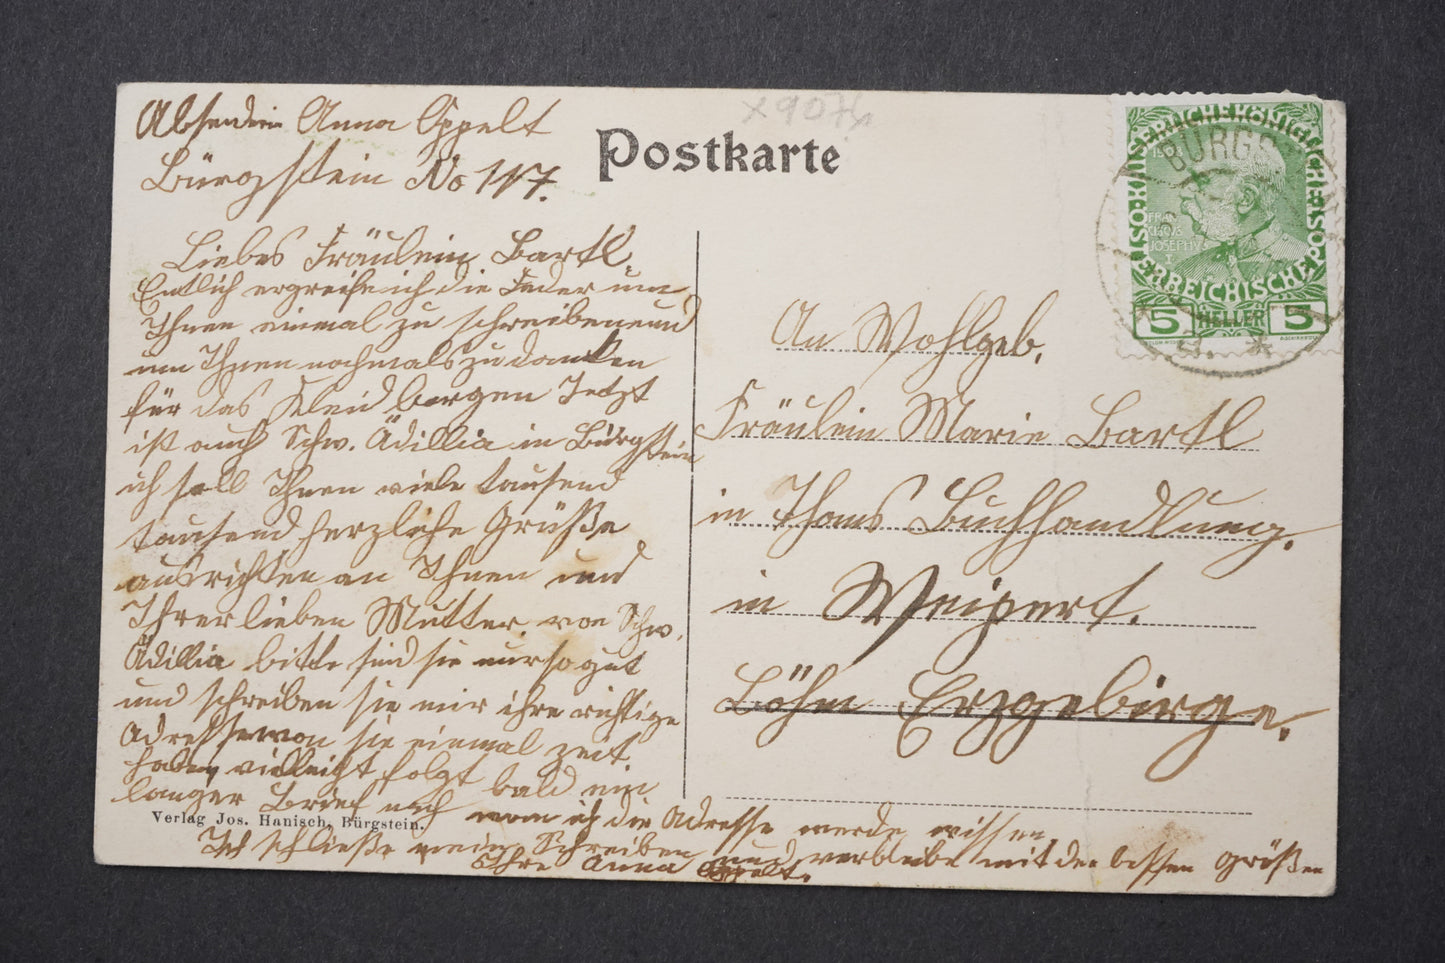 Absenderin Anna Oppelt
Bürgstein No 117.
x9076
Postkarte
ÖSTERREICHISCHE POST KAISERLICHE KÖNIGLICHE
1908
FRANCISCUS JOSEPHVS I
5 HELLER 5
BÜRGS
Liebes Fräulein Bartl
Entlich ergreife ich die Feder um
Ihnen einmal zu schreiben und
um Ihnen nochmals zu danken
für das Kleid borgen Jetzt
ist auch Schw. Ädillia in Bürgstein
ich soll Ihnen viele tausend
tausend herzliche Grüße
ausrichten an Ihnen und
Ihrer lieben Mutter. von Schw.
Ädillia bitte sind sie nur so gut
und schreiben sie mir ihre richtige
Adresse wen sie einmal zeit
haben vielleicht folgt bald ein
langer Brief nach wenn ich die Adresse werde wissen
Ich schließe mein Schreiben und verbleibe mit den besten Grüßen
Ihre Anna Oppelt.
An Wohlgeb.
Fräulein Marie Bartl
in Thoms Buchhandlung.
in Weipert.
Böhm Erzgebirge.
Verlag Jos. Hanisch, Bürgstein.